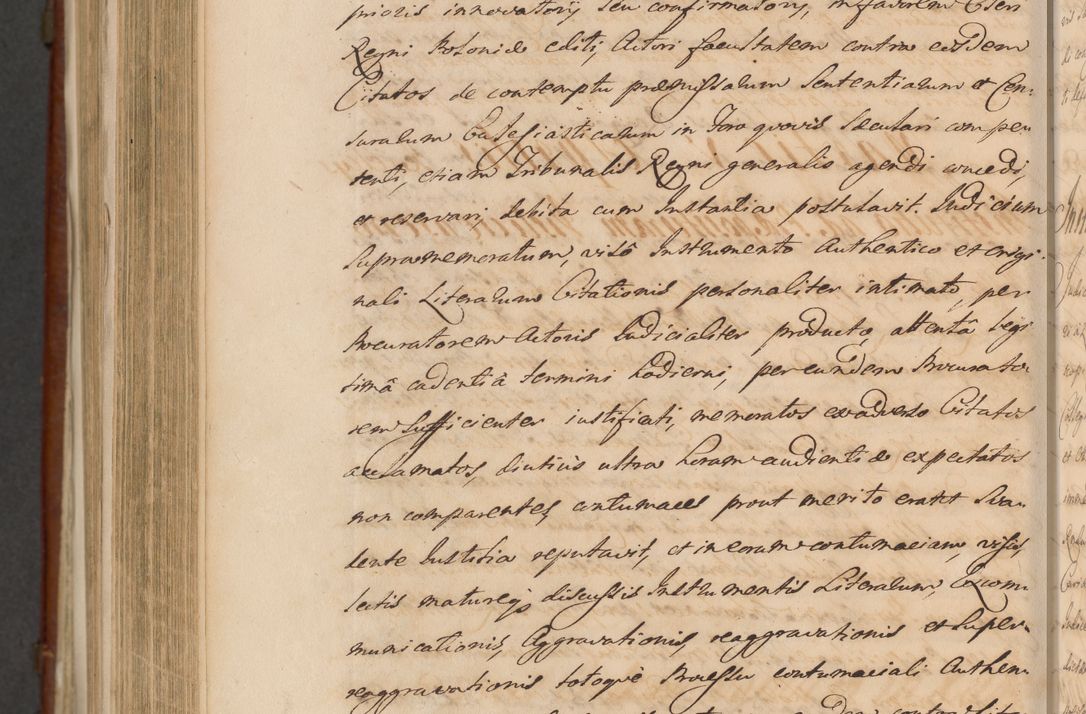 prioris innovatory, seu confirmatory, in favorem Cleri
Regni Poloniæ editi, Actori facultatem contra eosdem
Citatos de contemptu præmissarum Sententiarum et Cen-
surarum Ecclesiasticarum in Foro quovis Sæculari compe-
tenti, etiam Tribunalis Regni generalis agendi concedi,
et reservari, debita cum Instantia postulavit. Judicium
Supramemoratum, visô Instrumento Authentico et origi-
nali Literarum Citationis personaliter intimato, per
Procuratorem Actoris Judicialiter producto, attentâ legi
timâ cadentiâ termini hodierni, per eundem Procurato
rem sufficienter iustificati, memoratos exadverso Citatos
acclamatos, diutius ultra horam audientiæ expectatos
non comparentes, contumaces prout merito erant Sua-
dente Iustitia reputavit, et in eorum contumaciam, visis,
lectis matureq, discussis Instrumentis Literarum, Excom-
municationis, Aggravationis, reaggravationis et Super-
reaggravationis totoquè Processu contumaciali Authen-